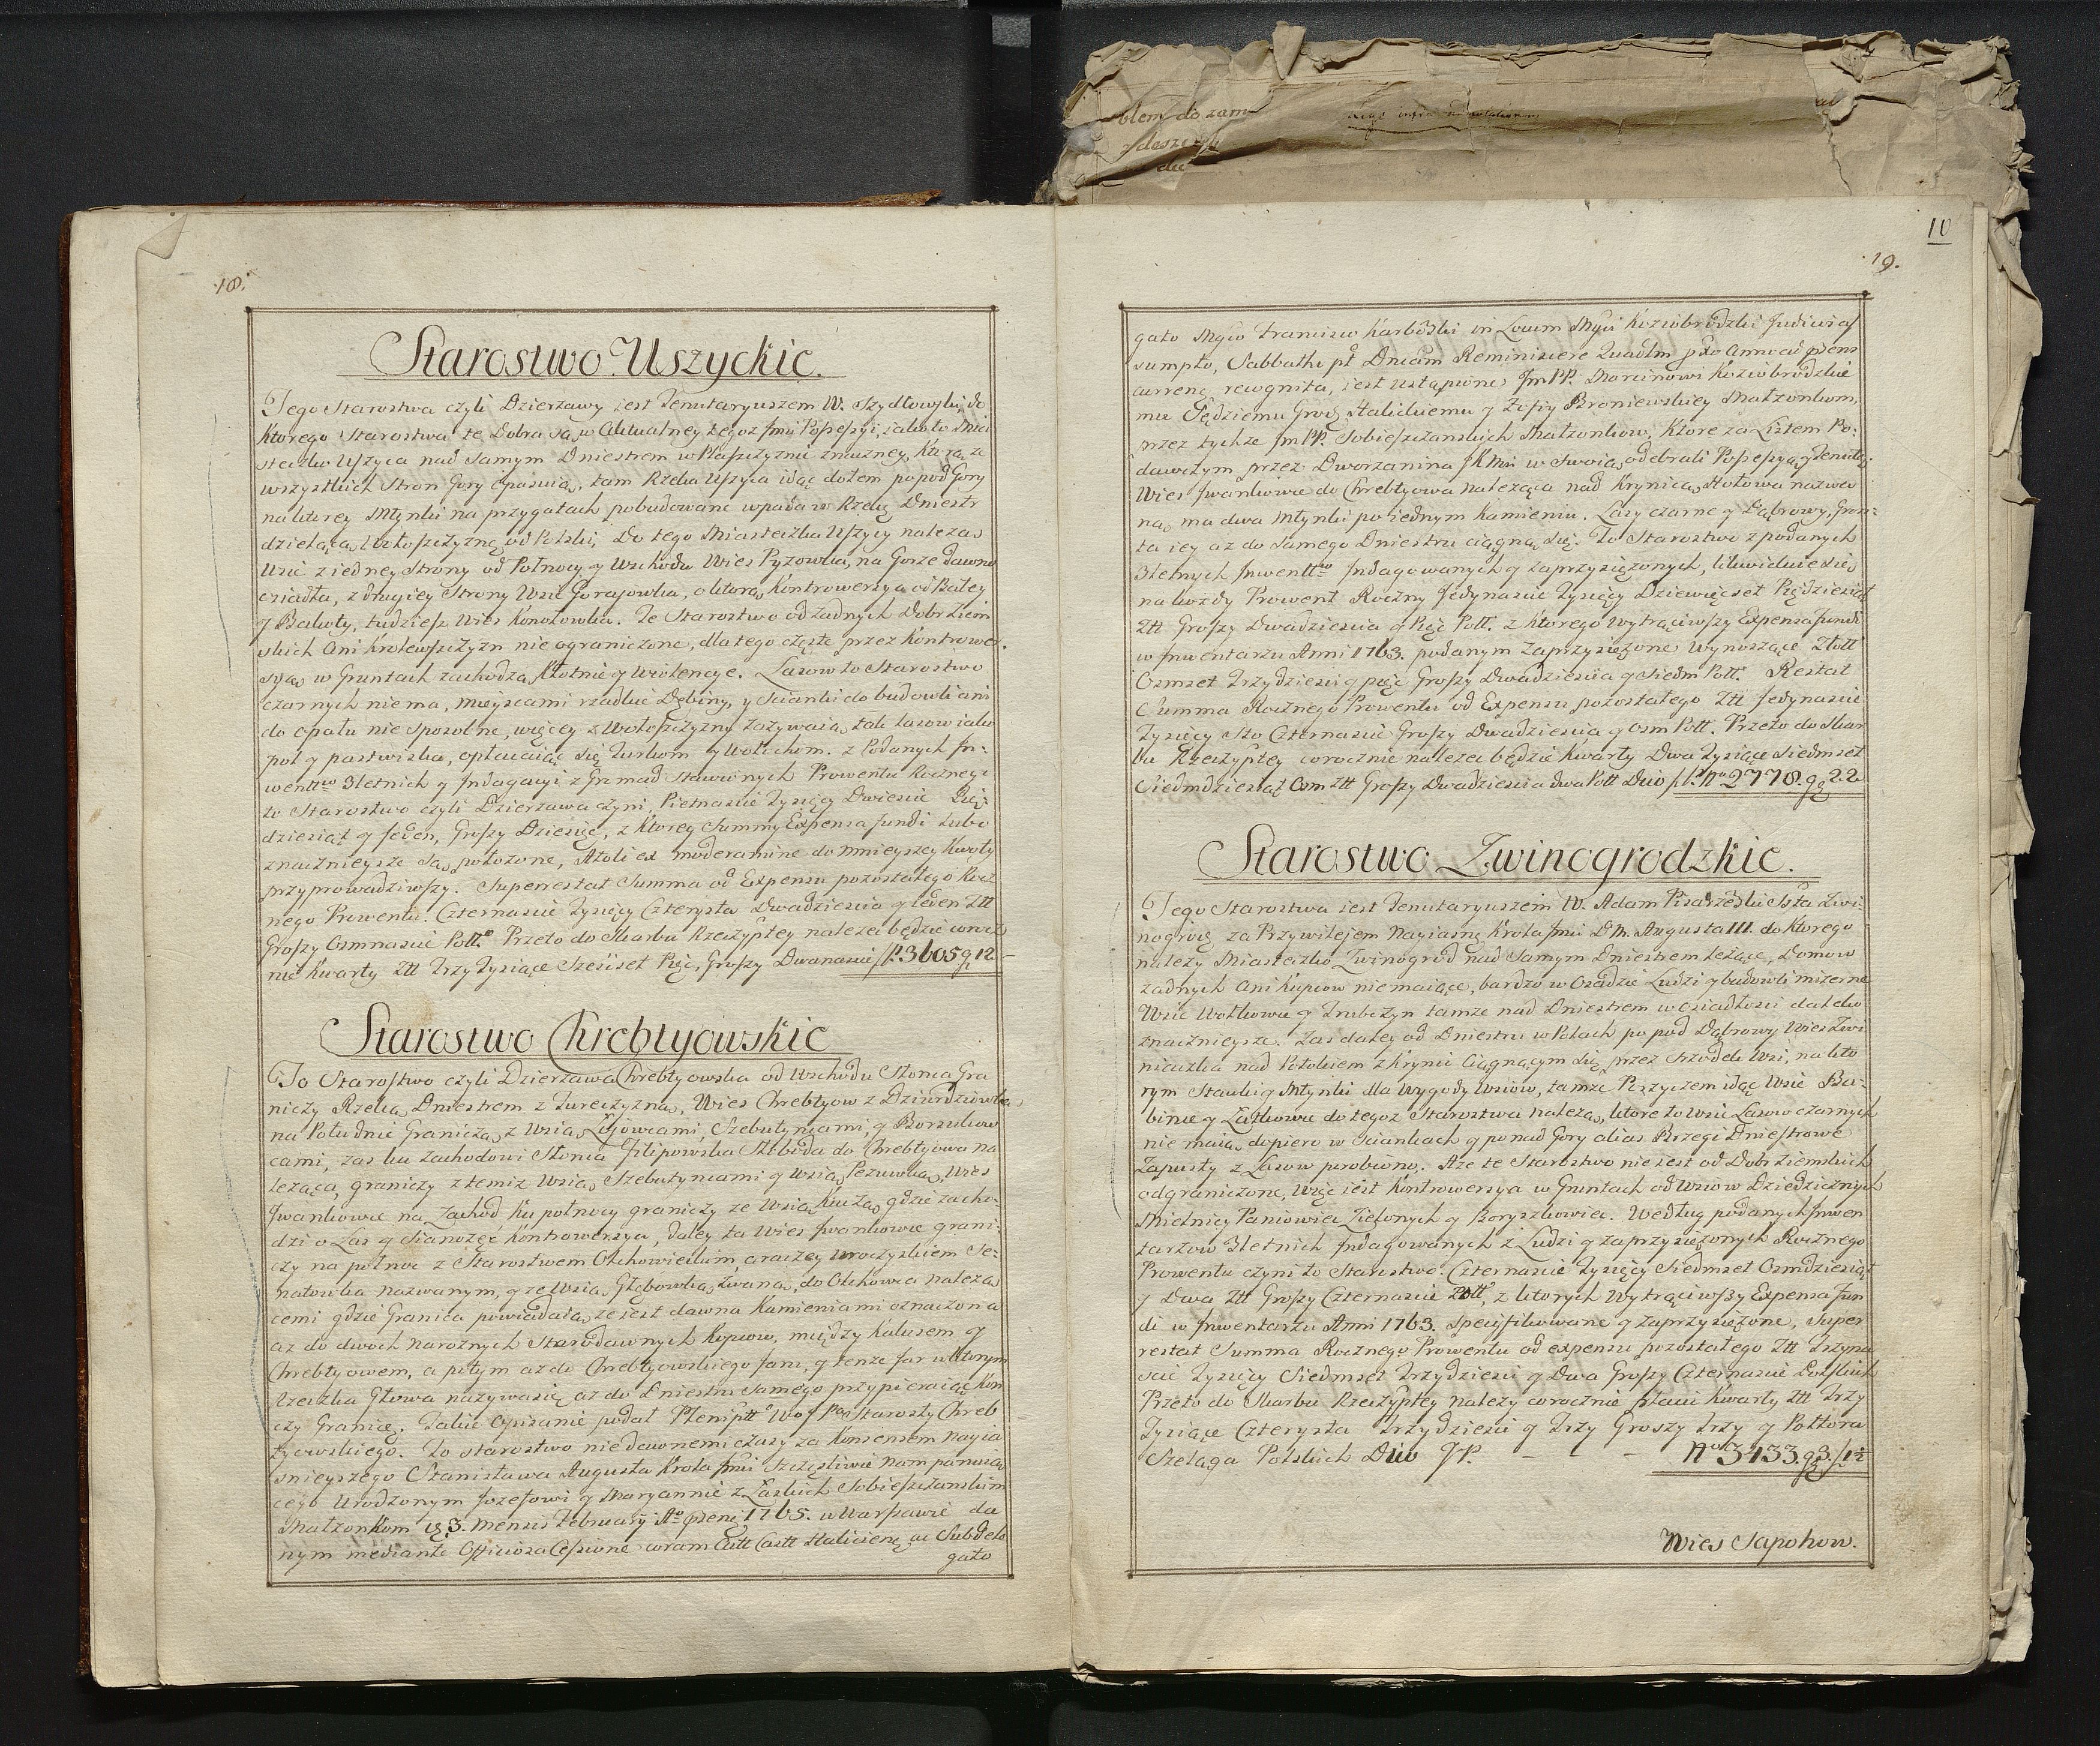 18.
Starostwo Uszyckie.
Tego Starostwa czyli Dzierzawy iest Tenutaryuszem W. Szydłowski, do
Ktorego Starostwa te Dobra są w Aktualney tegoż Jmci Possessyi, iako to Mia
steczko Uszyca nad samym Dniestrem w Płaszczyznie znaczney, Ktorą ze
wszystkich Stron Gory opasuią, tam Rzeka Uszyca idąc dołem popod Gory
na ktorey Młynki na przygatach pobudowane wpada w Rzekę Dniestr
dzielącą Wołoszczyznę od Polski, Do tego Miasteczka Uszycy należą
Wsie z iedney Strony od Połnocy y Wschodu Wies Pyzowka, na Gorze dawno
osiadła, z drugiey Strony Wsie Gorajowka, o ktorą Kontrowersya od Białey
y Bakoty, tudziesz Wies Konotowka. Te Starostwo od żadnych Dobr Ziem
skich ani Krolewszczyzn nie ograniczone, dlatego częste przez Kontrower.
syą w Gruntach zachodzą Kłotnie y Wiolencye. Lasow to Starostwo
czarnych niema, mieyscami rzadkie Dębiny, y Scianki do budowli ani
do opału nie sposobne, więcey z Wołoszczyzny zażywaią, tak Lasow iako
pol y pastwiska, opłacaiąc się Turkom y Wołochom. z Podanych In-
wentt̃w 3letnich y Indagacyi z Gromad stawionych Prowentu Rocznego
to Starostwo czyli Dzierzawa czyni Pietnascie Tysięcy Dwiescie Pięć-
dziesiąt y Jeden, Groszy Dziesięć, z Ktorey Summy Expensa fundi lubo
znacznieysze są położone, Atoli ex moderamine do mnieyszey Kwoty
przyprowadziwszy. Superestat Summa od Expensu pozostałego Rocz
nego Prowentu. Czternascie Tysięcy Czterysta Dwadziescia y ieden Ztt
Groszy Osmnascie Poll. Przeto do Skarbu Rzeczyptey należeć będzie corocz
nie Kwarty Ztt Trzy Tysiące Szescset Pięć, Groszy Dwanascie // f. 3605 g 12
Starostwo Chrebtyowskie
To Starostwo czyli Dzierzawa Chrebtyowska od Wschodu Słonca Gra
niczy Rzeką Dniestrem z Turecczyzną, Wies Chrebtyow z Dziurdziowką
na Południe Graniczą z Wsią Łojowcami, Szebutyncami, y Borsukow
cami, zas ku Zachodowi Słonca Filipowska Słoboda do Chrebtyowa na
leząca, graniczy z temiz Wsią Szebutyncami y Wsią Pezuwką, Wies
Iwankowce na Zachod Ku połnocy graniczy ze Wsią Kużą gdzie zacho-
dzi o Las y Sianozęć Kontrowersya, daley ta Wies Iwankowce grani-
czy na połnoc z Starostwem Olchowieckim, a raczey uroczyskiem Se-
natowka nazwanym, y ze Wsią Głębowką zwaną, do Olchowca należą
cemi gdzie Granica powiadaią, że iest dawna Kamieniami oznaczona
az do dwoch narożnych Starodawnych Kopcow, między Kalusem y
Chrebtyowem, a potym az do Chrebtyowskiego Jaru, y tenże Jar w ktorym
Rzeczka Głowa nazywa się az do Dniestru samego przypieraiąc Kon
czy Granicę. Takie Opisanie podał Plenipttᵗ Wo JPa Starosty Chreb
tyowskiego. To starostwo niedawnemi czasy za Konsensem Nayia
snieyszego Stanisława Augusta Krola Jmci Szczęsliwie Nam panuią
cego Urodzonym Jozefowi y Maryannie z Łaskich Sobieszczanskim
Małzonkom 3. Mensis Februarij A° psene 1765. w Warszawie da
nym mediante Officiosa Cessione coram Actt Castt Haliciens ac Subdele
gato
10
19.
gato Mgco Francisco Karbowski in Locum Mgci Koziobrodzki Judicis as
sumpto, Sabbatho pt Dnicam Reminiscere Quadlm pxo Anno ad psens
currene, recognita, iest ustąpione JmPP. Marcinowi Koziobrodzkie
mu Sędziemu Grodz Halickiemu y Zofiy Broniewskiey Małzonkom,
przez tychże JmPP. Sobieszczanskich Małzonkow, Ktore za Listem Po-
dawczym przez Dworzanina JKMci w swoią odebrali Possessyą y Tenutę.
Wies Iwankowce do Chrebtyowa Należąca nad Krynicą Hołowa nazwa
na, ma dwa Młynki po iednym Kamieniu. Lasy czarne y Dąbrowy, Grun-
ta iey az do Samego Dniestru ciągną się. To Starostwo z podanych
3letnych Inwentt̃w Indagowanych y zaprzysiężonych, likwiduie się
na kozdy Prowent Roczny Jedynascie Tysięcy Dziewięcset Pięddziesiąt
Ztt Groszy Dwadziescia y Pięć Poll. z Ktorego Wytrąciwszy Expensa fundi
w Inwentarzu Anni 1763. podanym Zaprzysiężone Wynoszące Złott
Osmset Trzydziesci y pięć Groszy Dwadziescia y Siedm Poll. Restat
Summa Rocznego Prowentu od Expensu pozostałego Ztt Jedynascie
Tysięcy Sto Czternascie Groszy Dwadziescia y Osm Poll. Przeto do Skar
bu Rzeczyptey corocznie należeć będzie Kwarty Dwa Tysiące Siedmset
Siedmdziesiąt Osm Ztt Groszy Dwadziescia dwa Poll Dico f. N° 2778. g 22
Starostwo Zwinogrodzkie.
Tego Starostwa iest Tenutaryuszem W. Adam Pisarzewski Ssta Zwi-
nogrodz za Przywilejem Nayiasn Krola Jmci D.N. Augusta III. do Ktorego
należy Miasteczko Zwinogrod nad Samym Dniestrem leżące, Domow
zadnych ani Kupcow nie maiące, bardzo w Osadzie Ludzi y budowli mizerne
Wsie Wołkowce y Trubczyn tamze nad Dniestrem w osiadłosci daleko
znacznieysze. Zas daley od Dniestru w Polach po pod Dąbrowy Wies Zwi
niaczka nad Potokiem z Krynic Ciągnącym się przez Szrodek Wsi, na kto
rym Stawki y Młynki dla wygody Wsiow, tamze Przyczem idąc Wsie Ba-
bince y Latkowce do tegoz Starostwa należą, ktore to Wsie Lasow czarnych
nie maią, dopiero w Sciankach y ponad Gory alias Brzegi Dniestrowe
Zapusty z Lasow porobiono. Aze te Starostwo nie iest od Dobr Ziemskich
odgraniczone, Więc iest Kontrowersya w Gruntach od Wsiow Dziedzicznych
Mielnicy Paniowiec Zielonych y Boryszkowiec. Według podanych Inwen
tarzow 3letnich Indagowanych z Ludzi y zaprzysiężonych Rocznego
Prowentu czyni to Starostwo. Czternascie Tysięcy Siedmset Osmdziesiąt
y Dwa Ztt Groszy Czternascie Poll, z ktorych Wytrąciwszy Expensa fun
di w Inwentarzu Anni 1763. specyfikowane y zaprzysiężone, super
restat Summa Rocznego Prowentu od expensu pozostałego Ztt Trzyna
scie Tysięcy Siedmset Trzydziesci y Dwa Groszy Czternascie Polskich
Przeto do Skarbu Rzeczyptey należy corocznie płacic Kwarty Ztt Trzy
Tysiące Czterysta Trzydziesci y Trzy Groszy Trzy y Połtora
Szeląga Polskich Dico fP. - - - N° 3433. g 3. / 1½
Wies Sapohow.